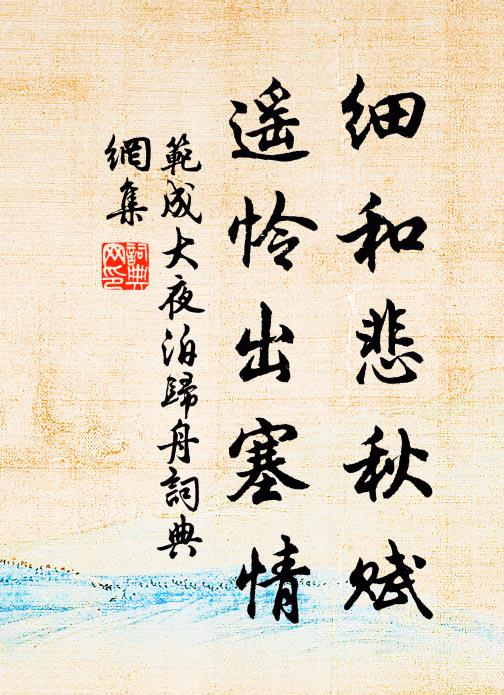 细和悲秋赋
遥怜出塞情
範成大夜泊歸舟詞典
網集
詞典
网印